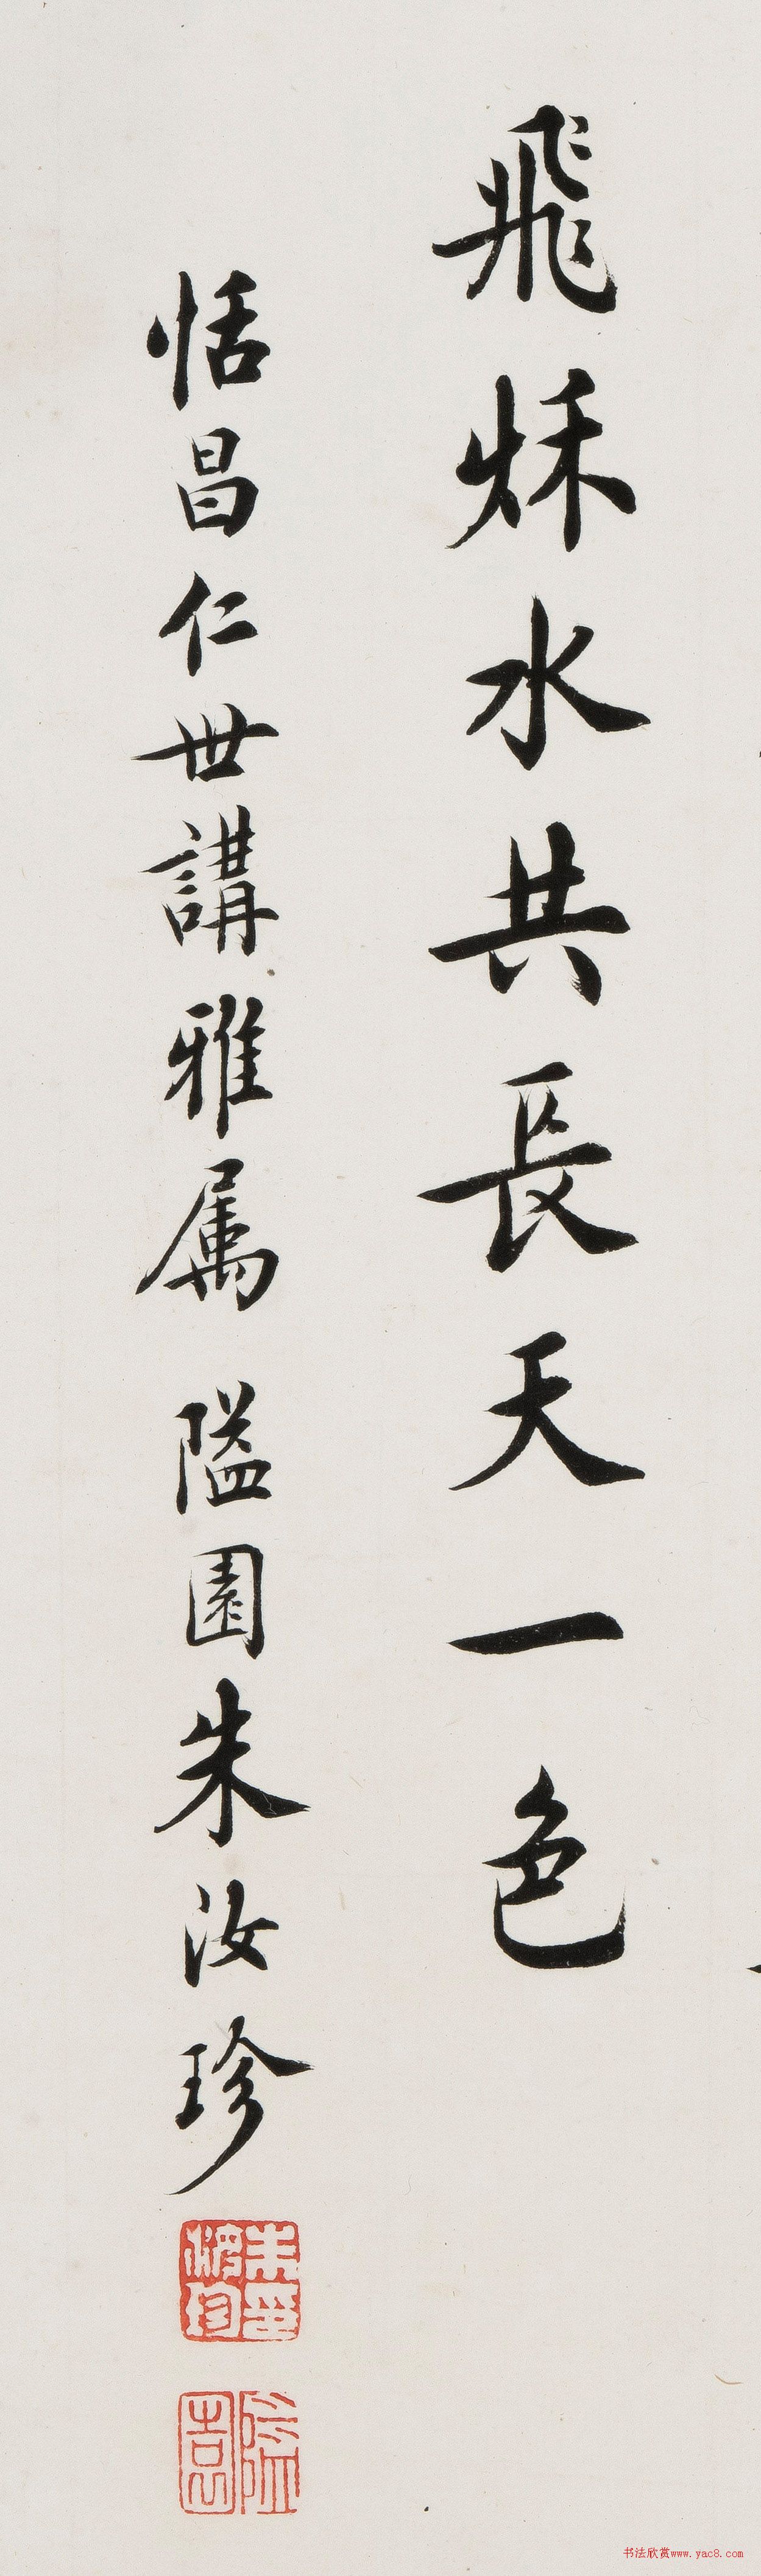 飛秌水共長天一色
恬昌仁世講雅属 隘園朱汝珍
朱印汝珍
隘園
书法欣赏www.yac8.com